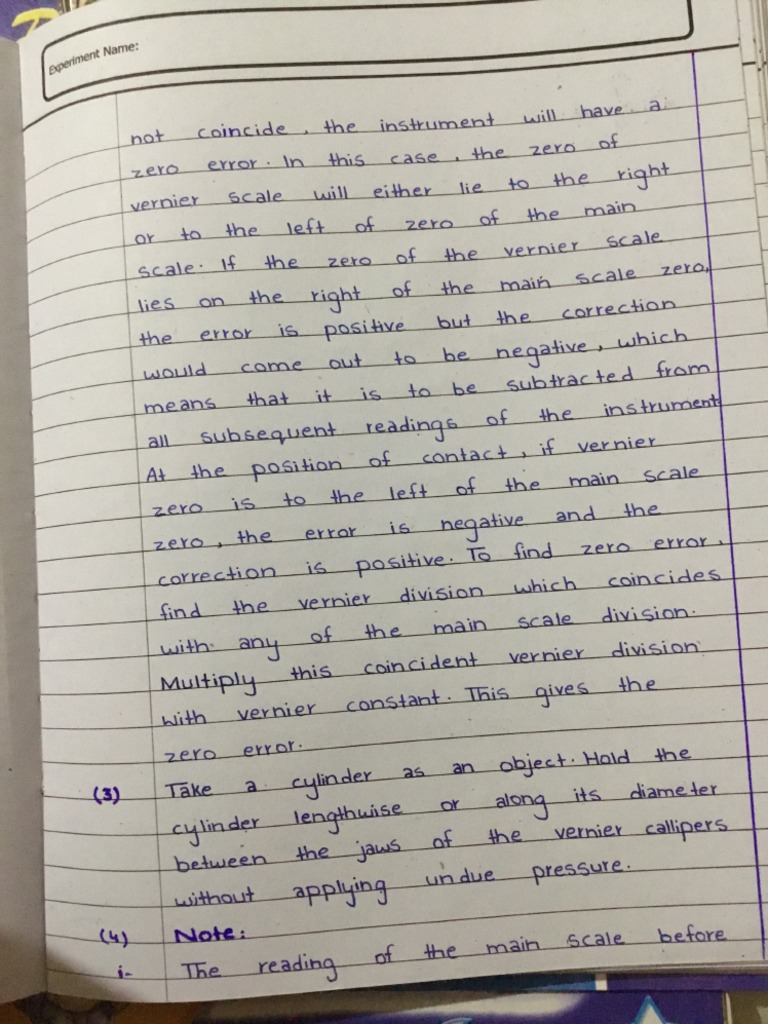 Experiment Name:
not coincide, the instrument will have a
zero error. In this case, the zero of
vernier scale will either lie to the right
or to the left of zero of the main
scale. If the zero of the vernier scale
lies on the right of the main scale zero,
the error is positive but the correction
would come out to be negative, which
means that it is to be subtracted from
all subsequent readings of the instrument
At the position of contact, if vernier
zero is to the left of the main scale
zero, the error is negative and the
correction is positive. To find zero error,
find the vernier division which coincides
with any of the main scale division.
Multiply this coincident vernier division
with vernier constant. This gives the
zero error.
(3) Take a cylinder as an object. Hold the
cylinder lengthwise or along its diameter
between the jaws of the vernier callipers
without applying undue pressure.
(4) Note:
i- The reading of the main scale before